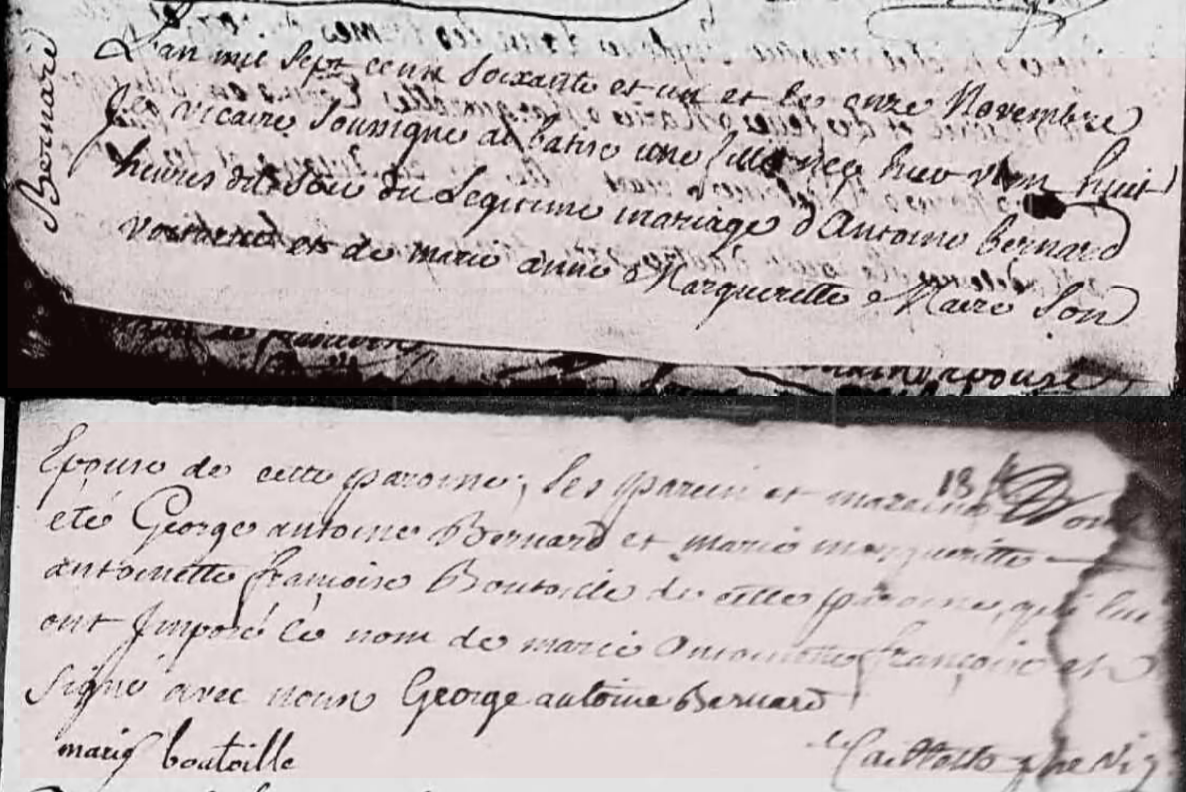 Bernard
L'an mil sept cent soixante et un et le onze Novembre
Je vicaire soussigné ai batisé une fille née hier huit
heures du soir du Legitime mariage d'Antoine bernard
et de marie anne Marguerette Maire Son
Epouse de cette paroisse, les parein et mareine ont
été George antoine Bernard et marie margueritte
antoinette françoise Boutoille de cette paroisse, qui lui
ont Imposé le nom de marie Antoinette françoise et
signé avec nous George antoine Bernard
marie boutoille